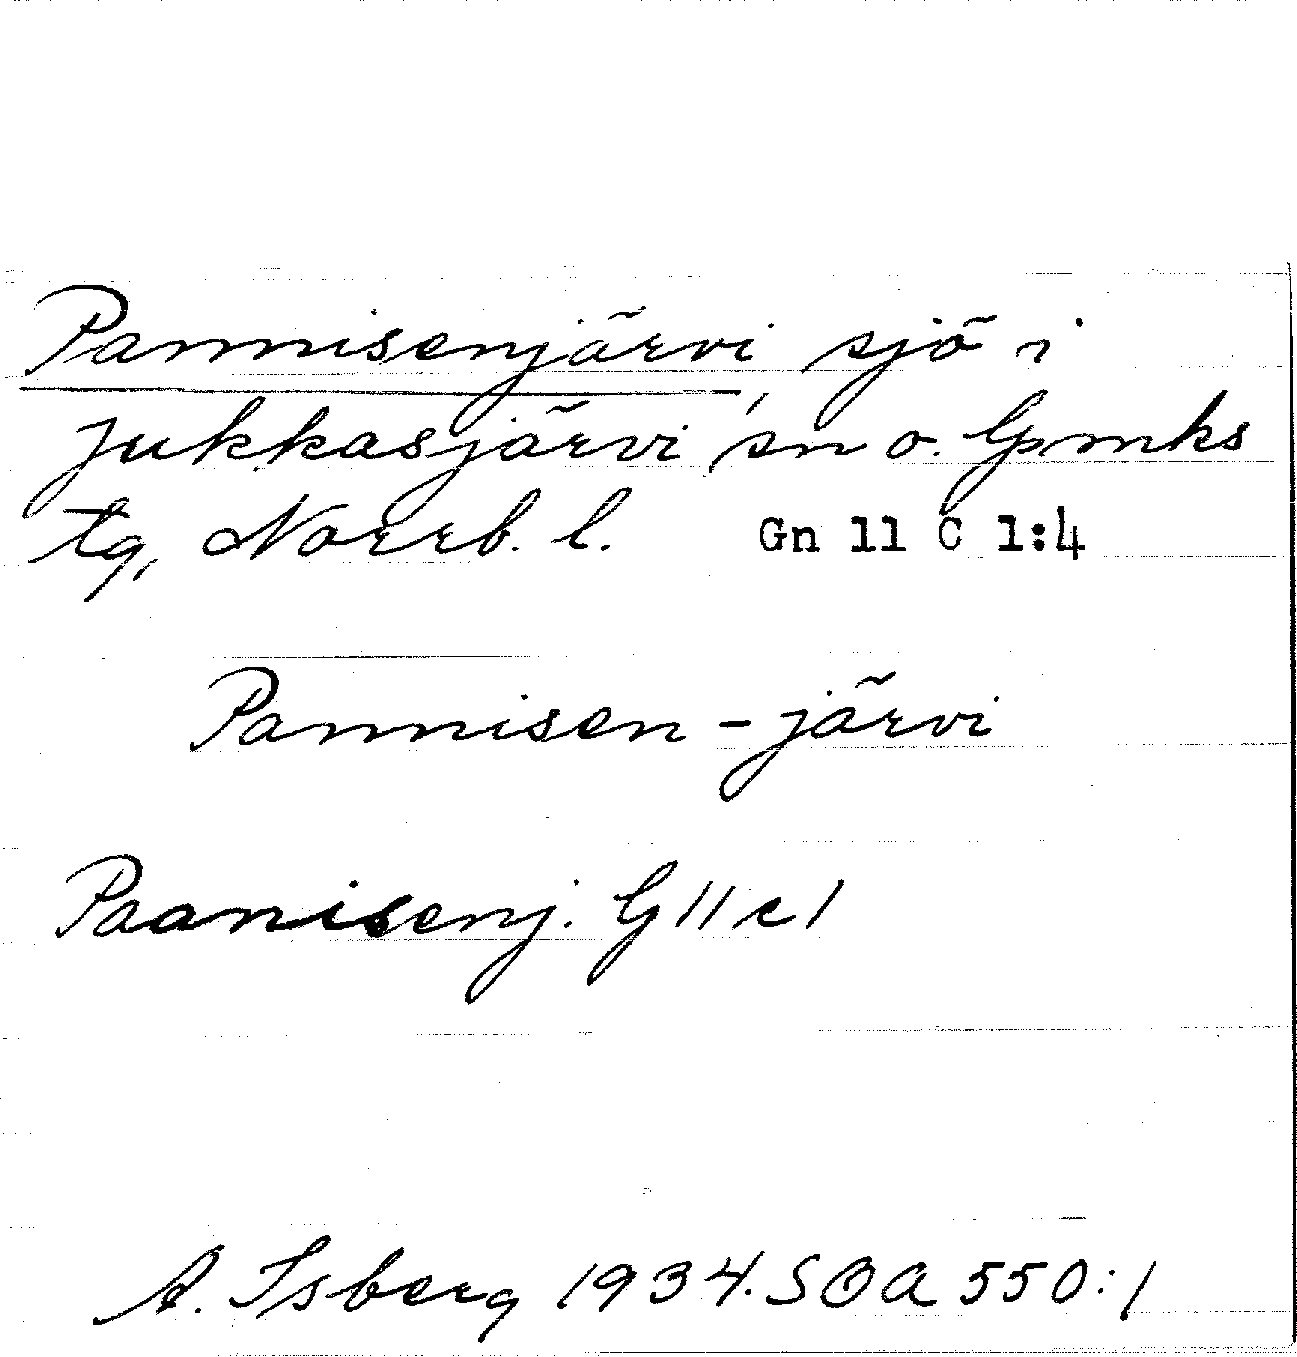 Pannisenjärvi, sjö i
Jukkasjärvi sn o. Gpmks
tg, Norrb. l. Gn 11 C 1:4
Pannisen - järvi
Paanisenj. G 11 c 1
A. Isberg 1934. SOA 550:1